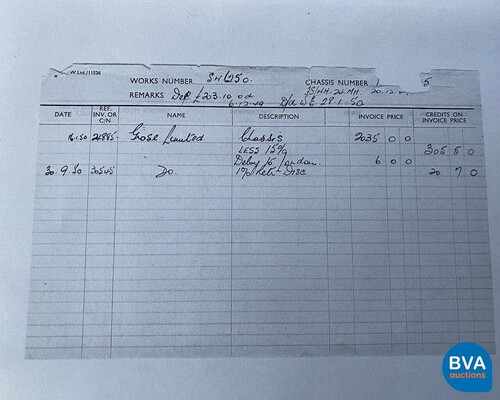 W.Ltd./11526
WORKS NUMBER CHASSIS NUMBER
REMARKS Dep £203.10.0d 6.12.49 D/d W E 28.1.50
DATE REF. INV. OR C/N NAME DESCRIPTION INVOICE PRICE CREDITS ON INVOICE PRICE
.1.50 Grose Limited Chassis 2035 0 0
LESS 15% 305 5 0
Delvy to London 6 0 0
30.9.50 30545 Do. 1% Retr Disc 20 7 0
BVA
auctions